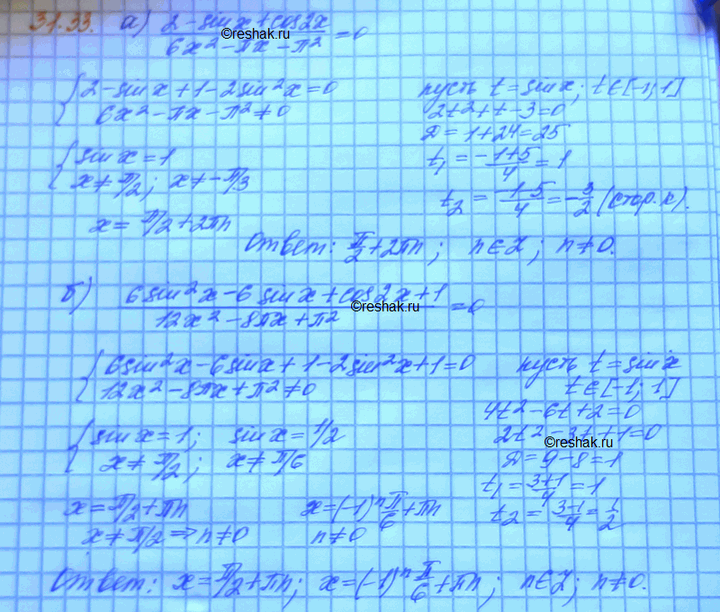 31.33. а) (2 - sin x + cos 2x)/(6x² - πx - π²) = 0
©reshak.ru
{ 2 - sin x + 1 - 2sin²x = 0
6x² - πx - π² ≠ 0
пусть t = sin x; t ∈ [-1; 1]
2t² + t - 3 = 0
D = 1 + 24 = 25
{ sin x = 1
x ≠ π/2; x ≠ -π/3
t₁ = (-1+5)/4 = 1
t₂ = (-1-5)/4 = -3/2 (стор. к).
x = π/2 + 2πn
Ответ: π/2 + 2πn; n ∈ Z; n ≠ 0.
б) (6sin²x - 6sin x + cos 2x + 1)/(12x² - 8πx + π²) = 0
©reshak.ru
{ 6sin²x - 6sin x + 1 - 2sin²x + 1 = 0
12x² - 8πx + π² ≠ 0
пусть t = sin x
t ∈ [-1; 1]
4t² - 6t + 2 = 0
2t² - 3t + 1 = 0
©reshak.ru
D = 9 - 8 = 1
{ sin x = 1; sin x = 1/2
x ≠ π/2; x ≠ π/6
t₁ = (3+1)/4 = 1
t₂ = (3-1)/4 = 1/2
x = π/2 + πn
x = (-1)ⁿ π/6 + πn
x ≠ π/2 ⇒ n ≠ 0
n ≠ 0
Ответ: x = π/2 + πn; x = (-1)ⁿ π/6 + πn; n ∈ Z; n ≠ 0.